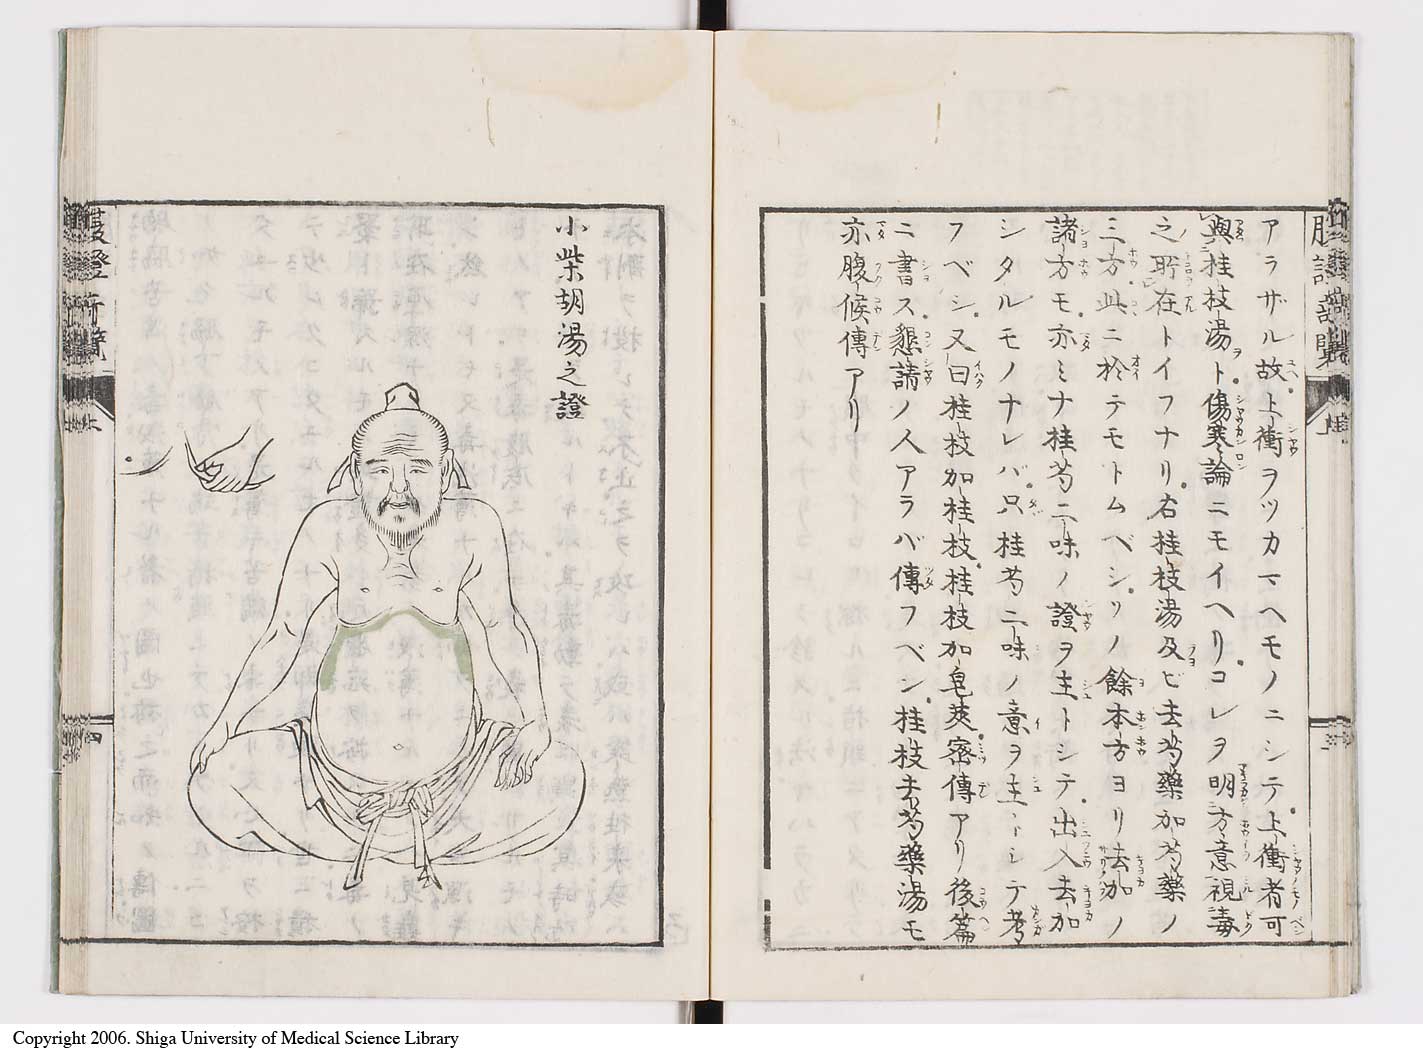 アラザル故上衝ヲツカマヘモノニシテ上衝者可
與桂枝湯ト傷寒論ニモイヘリコレヲ明方意視毒
之所在トイフナリ右桂枝湯及ビ去芍藥加芍藥ノ
三方此ニ於テモトムベシソノ餘本方ヨリ去加ノ
諸方モ亦ミナ桂芍二味ノ證ヲ主トシテ出入去加
シタルモノナレバ只桂芍二味ノ意ヲ主トシテ考
フベシ又曰桂枝加桂枝桂枝加皂莢密傳アリ後篇
ニ書ス懇請ノ人アラバ傳フベシ桂枝去芍藥湯モ
亦腹候傳アリ
小柴胡湯之證
Copyright 2006. Shiga University of Medical Science Library